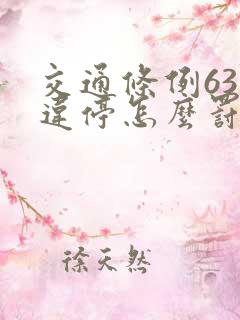 交通條例63
違停怎麼罰
徐天然